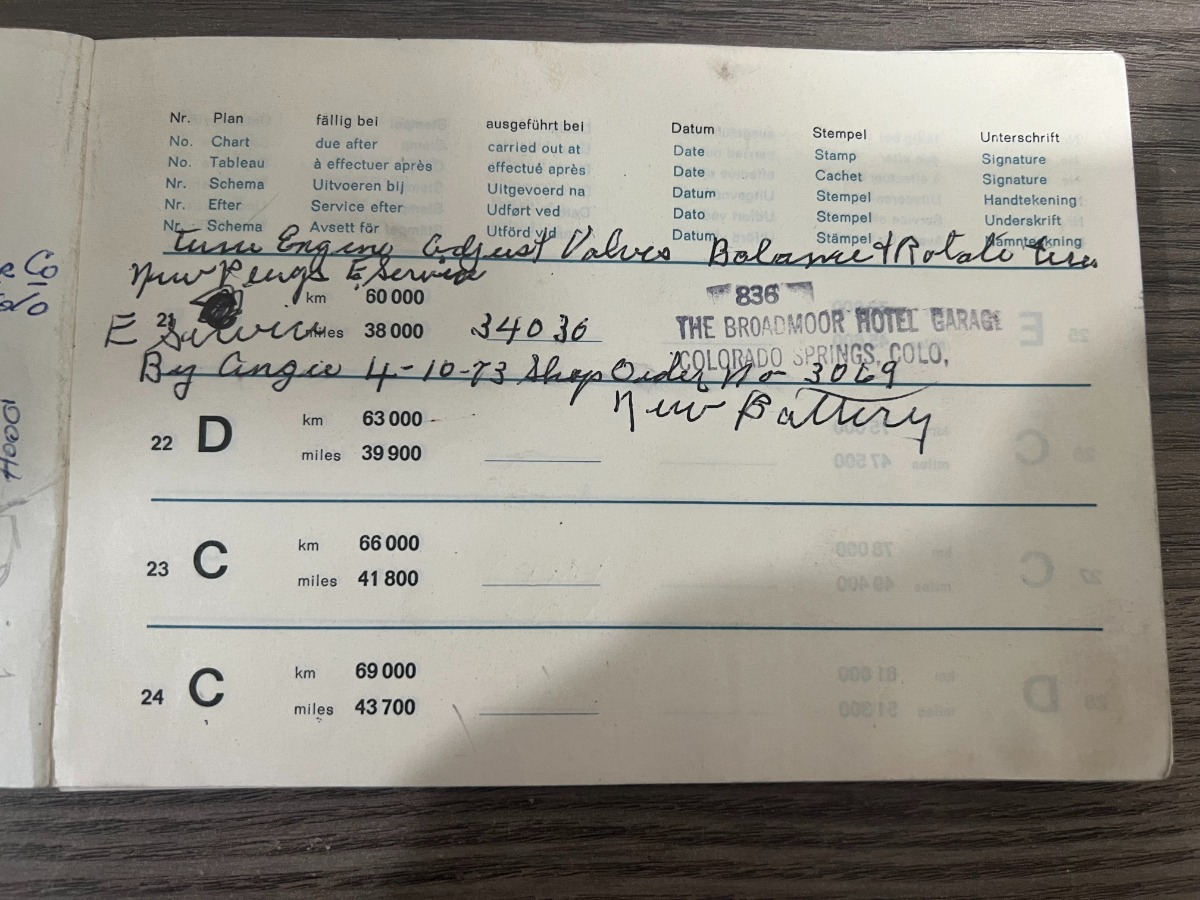 Nr. Plan fällig bei ausgeführt bei Datum Stempel Unterschrift
No. Chart due after carried out at Date Stamp Signature
No. Tableau à effectuer après effectué après Date Cachet Signature
Nr. Schema Uitvoeren bij Uitgevoerd na Datum Stempel Handtekening
Nr. Efter Service efter Udført ved Dato Stempel Underskrift
Nr. Schema Avsett för Utförd vid Datum Stämpel Namnteckning
Tune Engine Adjust Valves Balance & Rotate Tires
New E Service
km 60 000 836
21 E Service miles 38 000 34036 THE BROADMOOR HOTEL GARAGE
COLORADO SPRINGS, COLO,
By Angie 4-10-73 Shop Order No 3069
New Battery
22 D km 63 000
miles 39 900
23 C km 66 000
miles 41 800
24 C km 69 000
miles 43 700